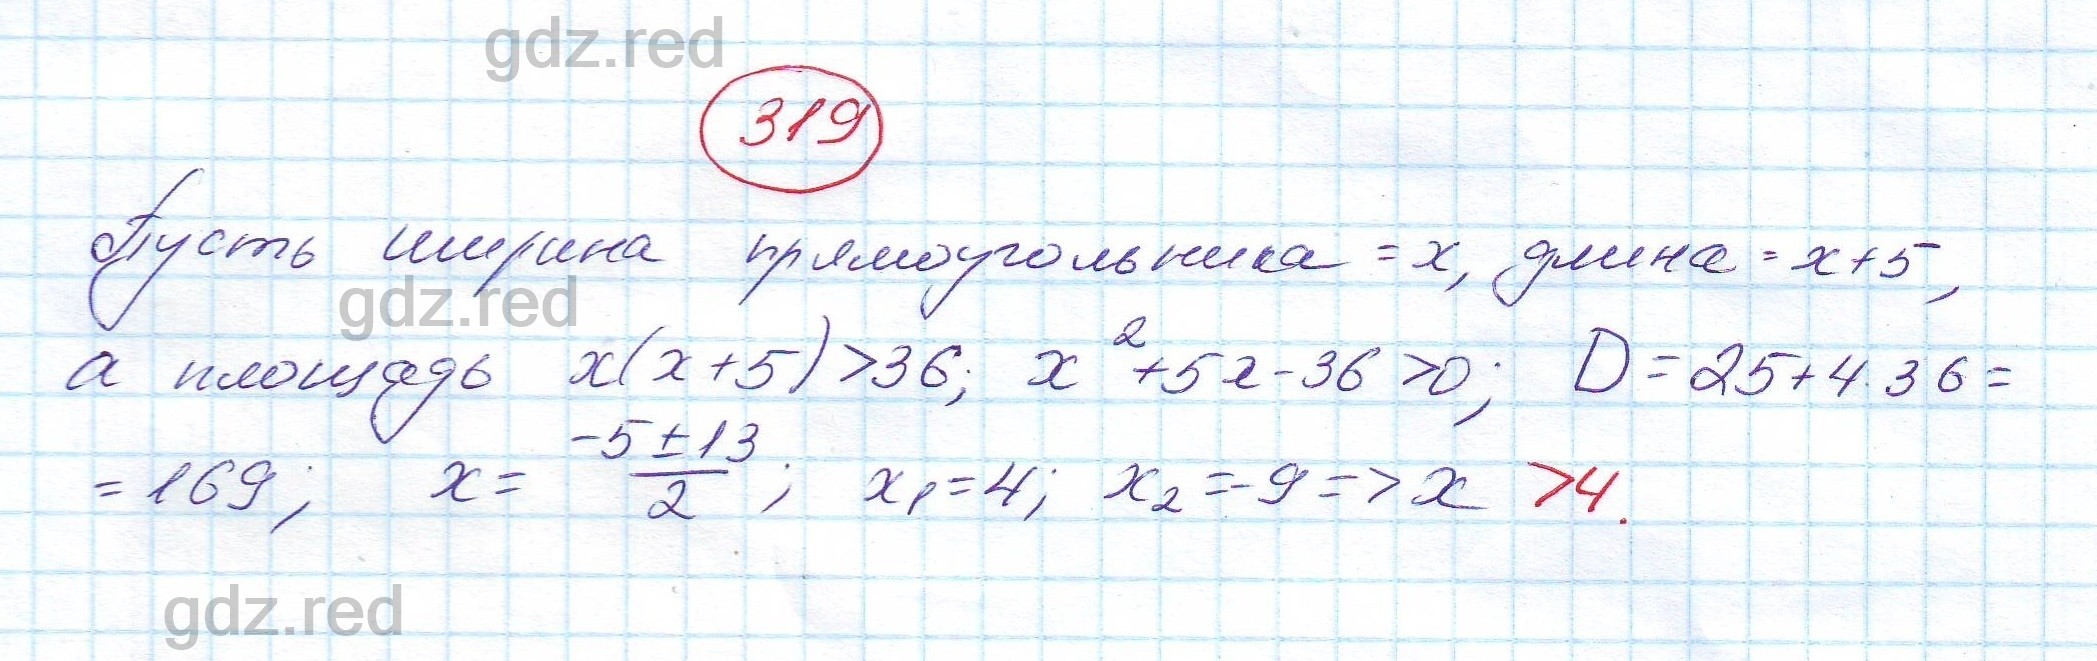 gdz.red
319
Пусть ширина прямоугольника = x, длина = x+5,
gdz.red
а площадь x(x+5)>36; x²+5x-36>0; D=25+4·36=
=169; x= (-5±13)/2; x₁=4; x₂=-9=>x >4.
gdz.red